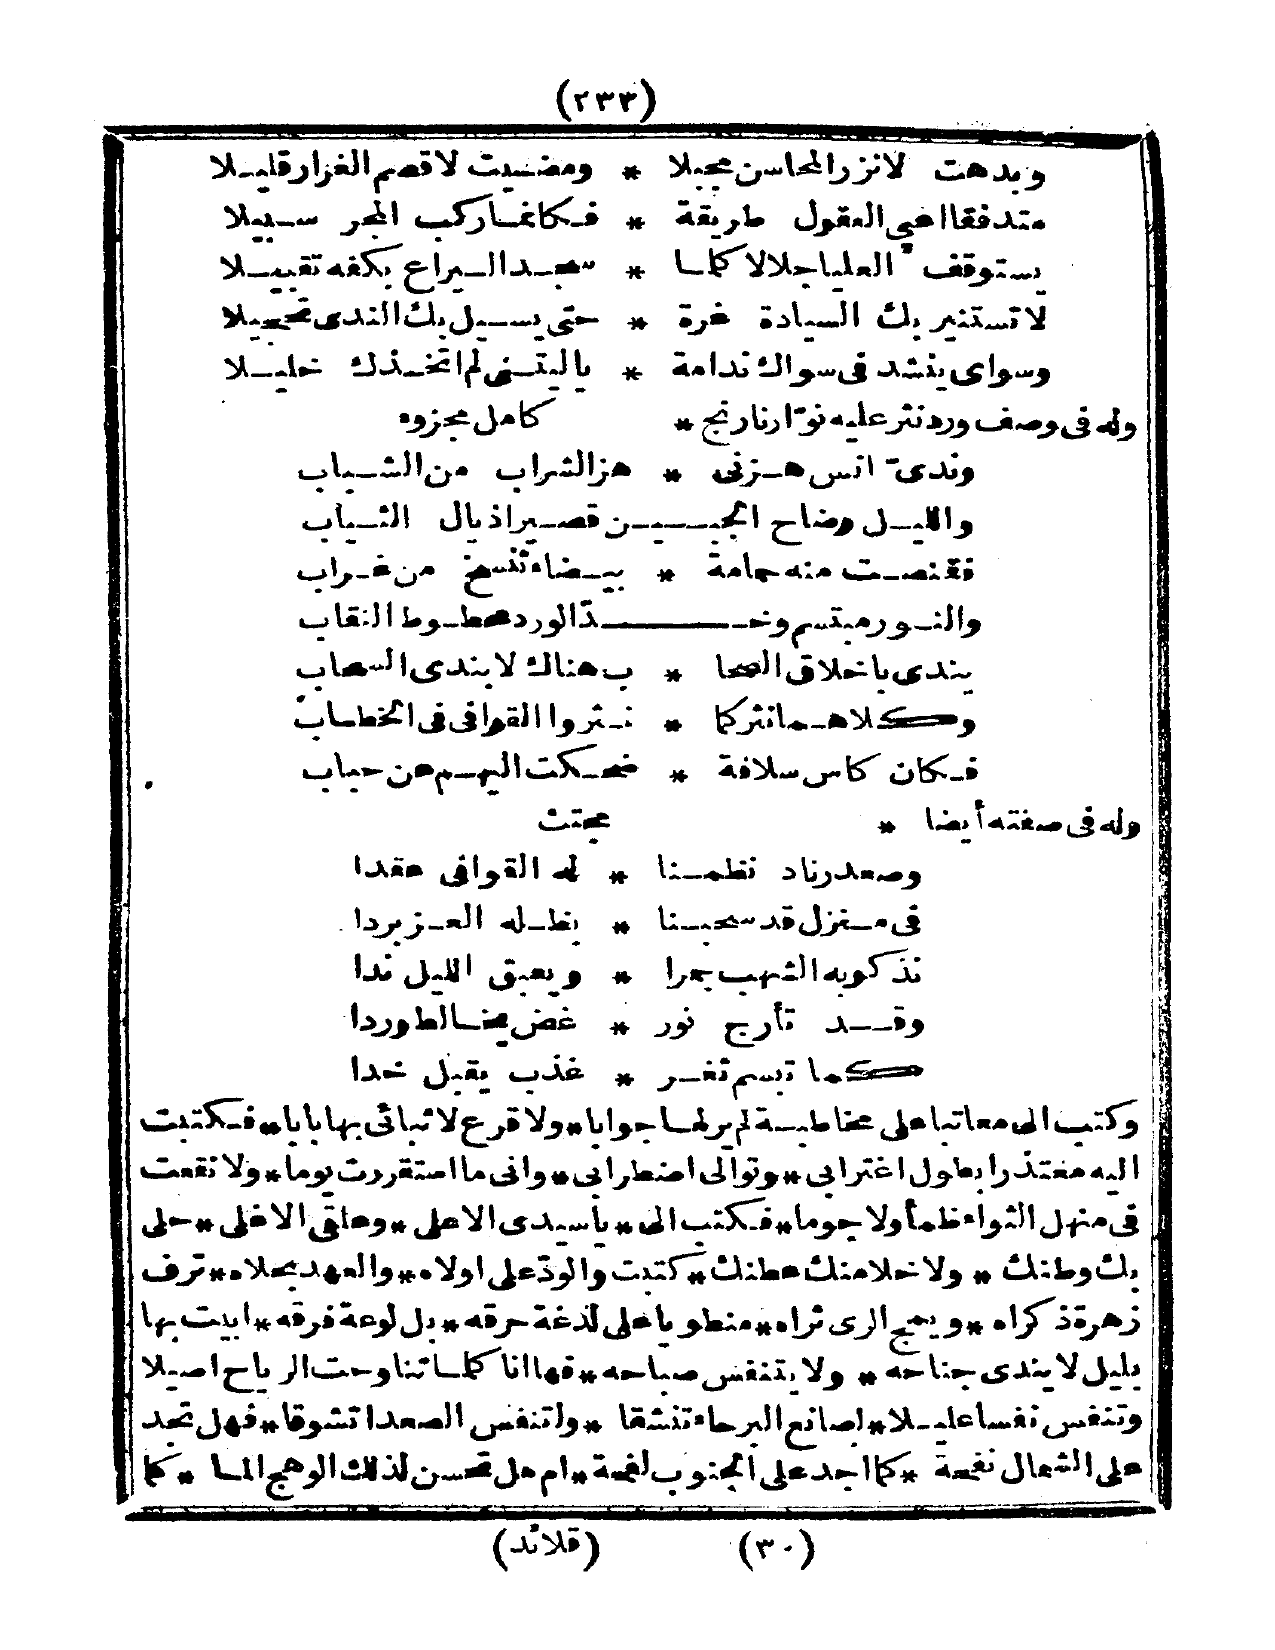 (٢٣٣)
وبدهت لا نزر المحاسن مجبلا * ومضيت لا قصم الغرار قليلا
متدفقا اعي العقول طريقة * فكانما ركب المجر سبيلا
يستوقف العليا جلالا كلما * سجد اليراع بكفه تقبيلا
لا تستنير بك السيادة غرة * حتى يسيل بك الندى تحجيلا
وسواى ينشد فى سواك ندامة * ياليتنى لم اتخذك خليلا
وله فى وصف ورد نثر عليه نوّار نارنج * كامل مجزوه
وندىّ انس هزنى * هز الشراب من الشباب
والليل وضاح الجبيـــن قصير اذيال الثياب
فقنصت منه حمامة * بيضاء تنسخ من غراب
والنور مبتسم وخـــدّ الورد محطوط النقاب
يندى باخلاق الصحا * ب هناك لا بندى السحاب
وكلاهما نثر كما * نثروا القوافى فى الخطاب
فكان كاس سلافة * ضحكت اليهم عن حباب
وله فى صفته أيضا * مجتث
وصدر ناد نظمنا * له القوافى عقدا
فى منزل قد سحبنا * بظله العز بردا
تذكو به الشهب جمرا * ويعبق الليل ندا
وقد تأرج نور * غض يخالط وردا
كما تبسم ثغر * عذب يقبل خدا
وكتب الى معاتبا على مخاطبة لم ير لها جوابا * ولا قرع لانبائى بها بابا * فكتبت
اليه معتذرا بطول اغترابى * وتوالى اضطرابى * وانى ما استقررت يوما * ولا نقعت
فى منهل الثواء ظمأ ولا حوما * فكتب الى * يا سيدى الاعلى * وعلقى الاغلى * حلى
بك وطنك * ولا خلا منك عطنك * كتبت والودّ على اولاه * والعهد بحلاه * ترف
زهرة ذكراه * ويمج الرى ثراه * منطويا على لذعة حرقه * بل لوعة فرقه * ابيت بها
بليل لا يندى جناحه * ولا يتنفس صباحه * فها انا كلما تناوحت الرياح اصيلا
وتنفس نفسا عليلا * اصانع البرحاء تنشقا * ولتنفس الصعدا تشوقا * فهل تجد
على الشمال نفحة * كما اجد على الجنوب لفحة * ام هل تحسن لذلك الوهج الما * كما
(٣٠)
(قلائد)